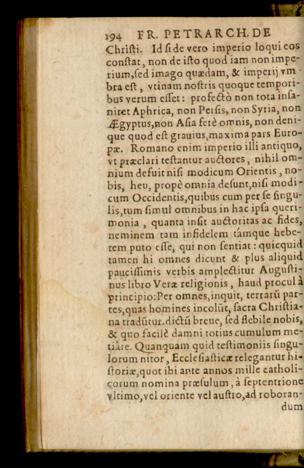 194 FR. PETRARCH. DE
Christi. Id si de vero imperio loqui eos
constat, non de isto quod iam non impe-
rium, sed imago quædam, & imperij vm
bra est, vtinam nostris quoque tempori-
bus verum esset: profectò non tota insa-
niret Aphrica, non Persis, non Syria, non
Ægyptus, non Asia ferè omnis, non deni-
que quod est grauius, maxima pars Euro-
pæ. Romano enim imperio illi antiquo,
vt præclari testantur auctores, nihil om-
nium defuit nisi modicum Orientis, no-
bis, heu, propè omnia desunt, nisi modi-
cum Occidentis, quibus cum per se singu-
lis, tum simul omnibus in hac ipsa queri-
monia, quanta insit auctoritas ac fides,
neminem tam infidelem támque hebe-
tem puto esse, qui non sentiat: quicquid
tamen hi omnes dicunt & plus aliquid
paucissimis verbis amplectitur Augusti-
nus libro Veræ religionis, haud procul à
principio: Per omnes, inquit, terrarū par-
tes, quas homines incolūt, sacra Christia-
na tradūtur. dictū breue, sed flebile nobis,
& quo facilè damni totius cumulum me-
tiāre. Quanquam quid testimoniis singu-
lorum nitor, Ecclesiasticæ relegantur hi-
storiæ, quot ibi ante annos mille catholi-
corum nomina præsulum, à septentrione
vltimo, vel oriente vel austro, ad roboran-
dum